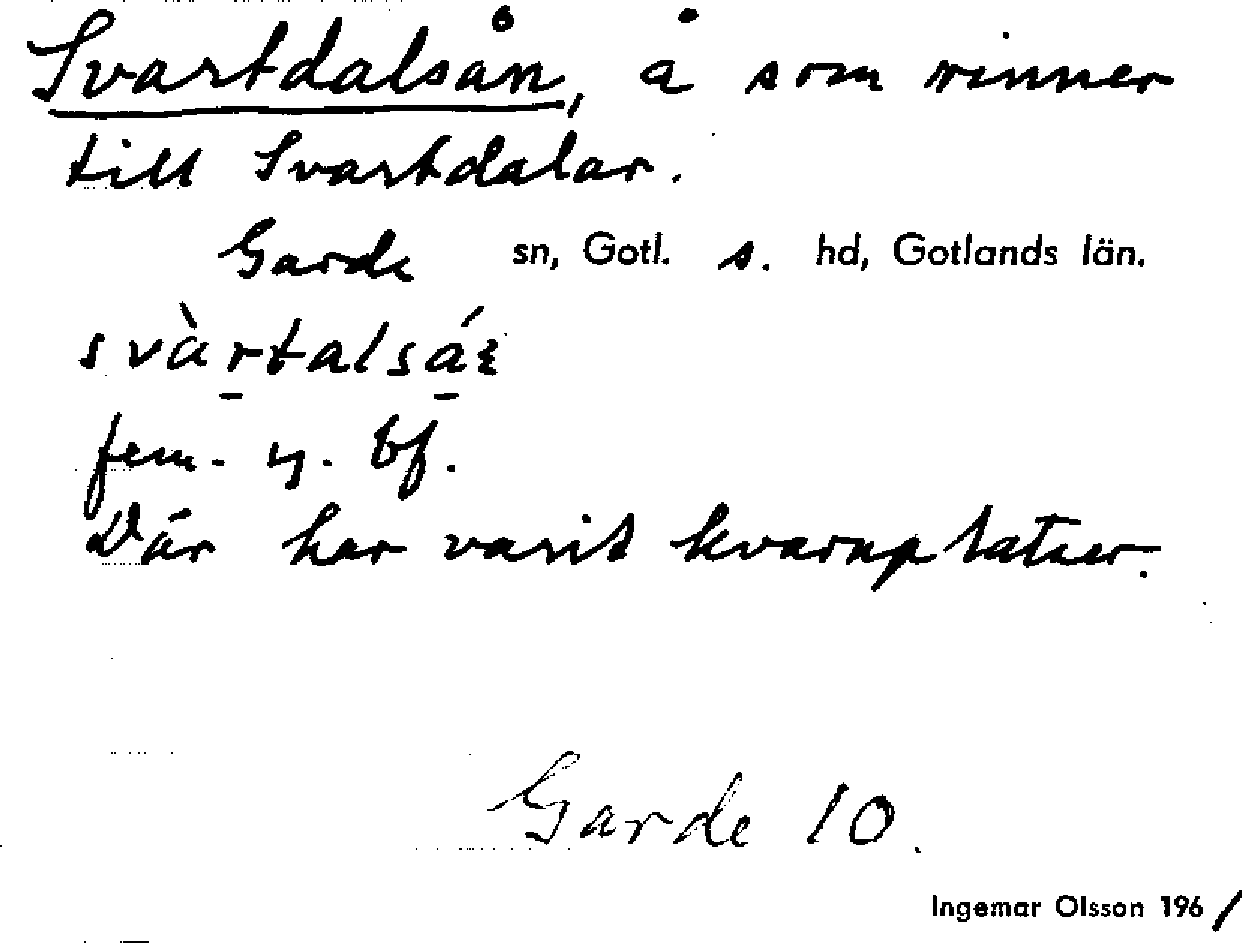 Svartdalsån, å som rinner
till Svartdalar.
Garde sn, Gotl. s. hd, Gotlands län.
fem. bf.
Där har varit kvarnplatser.
Garde 10.
Ingemar Olsson 1961